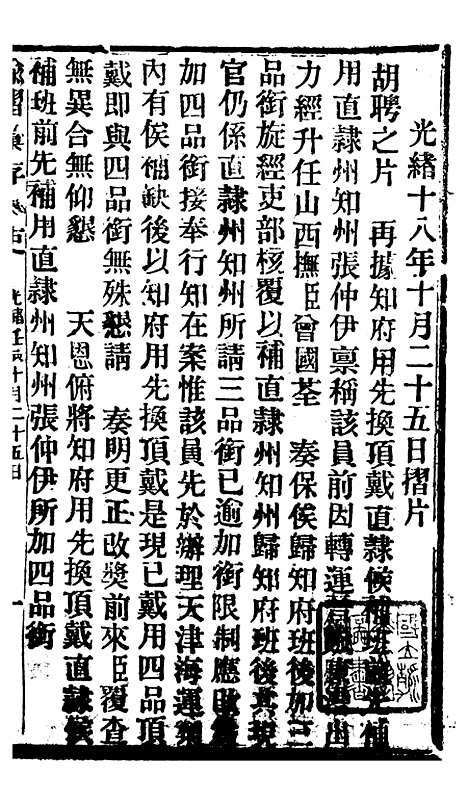 光緒十八年十月二十五日摺片
胡聘之片　再據知府用先換頂戴直隸候補班前先補
用直隸州知州張仲伊稟稱該員前因轉運出
力經升任山西撫臣曾國荃　奏保俟歸知府班後加三
品銜旋經吏部核覆以補直隸州知州歸知府班後其現
官仍係直隸州知州所請三品銜已逾加銜限制應改
加四品銜接奉行知在案惟該員先於辦理天津海運案
內有俟補缺後以知府用先換頂戴是現已戴用四品頂
戴即與四品銜無殊懇請　奏明更正改獎前來臣覆查
無異合無仰懇　天恩俯將知府用先換頂戴直隸候
補班前先補用直隸州知州張仲伊所加四品銜
諭摺彙存　光緒壬辰十月二十五日　一